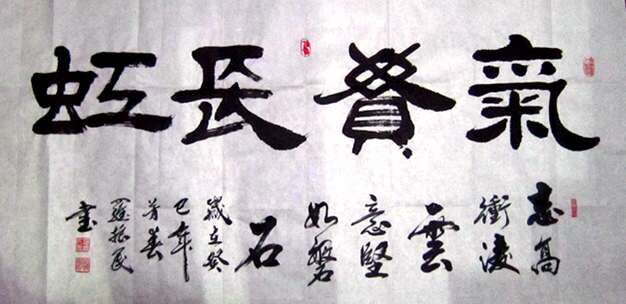 氣貫長虹
志高
衝凌
雲
意堅
如磐
石
歲在癸
巳年
芳春
羅振民
書